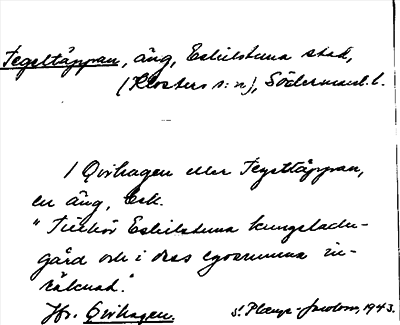 Tegeltäppan, äng, Eskilstuna stad,
(Klosters s:n), Södermanl. l.
/ Qvihagen eller Tegeltäppan,
en äng, Esk.
"Tillhör Eskilstuna kungsladu-
gård och i dess egorumma in-
räknad."
Jfr. Qvihagen.
1943.